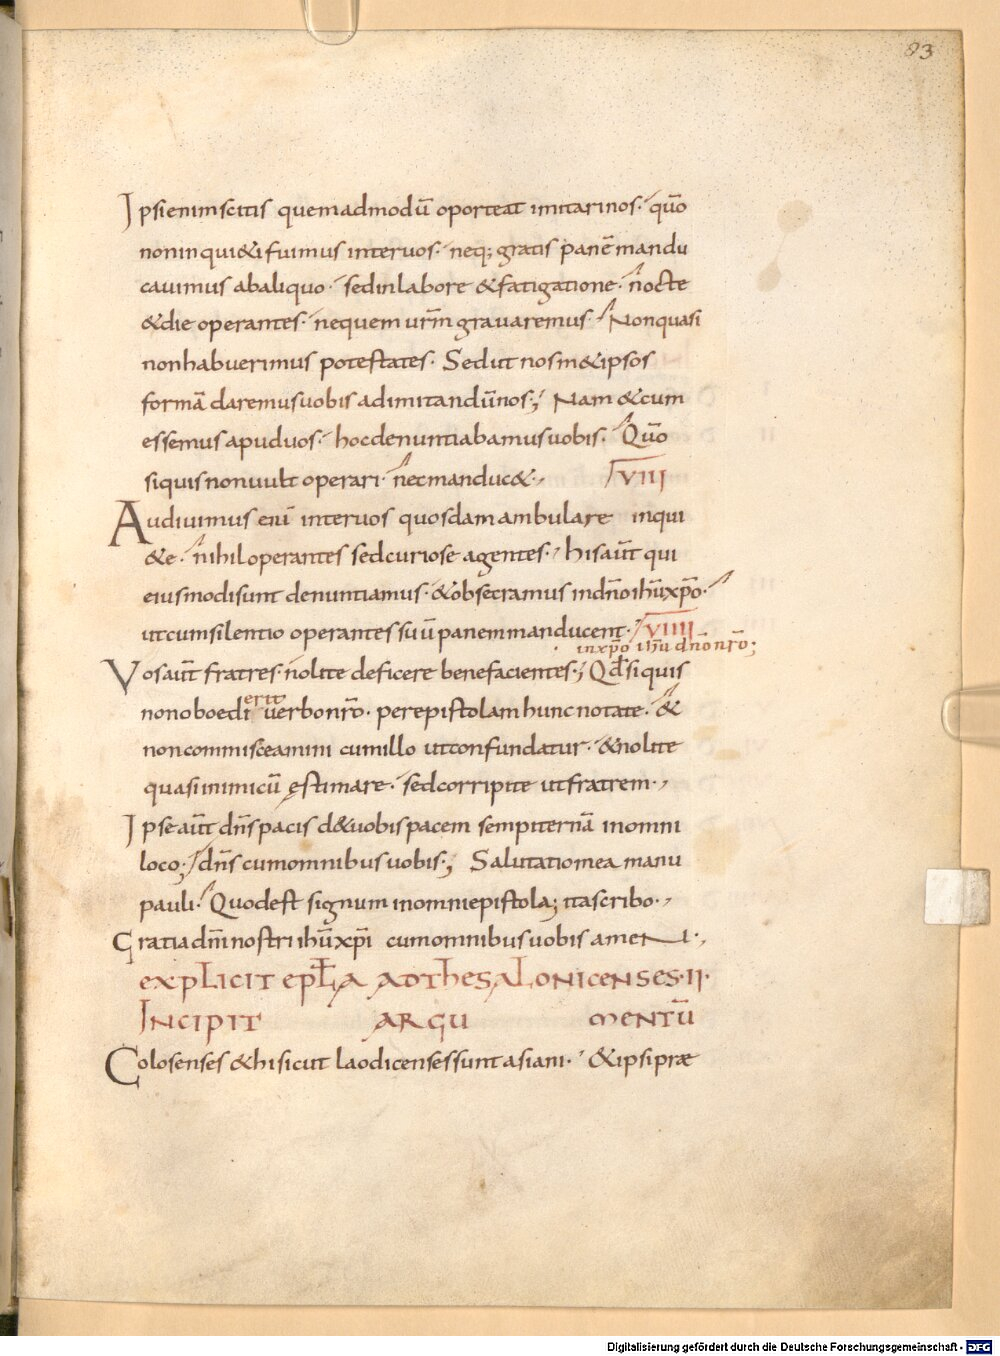 93
Ipsi enim scitis quemadmodū oporteat imitari nos· quō
non inqui&i fuimus inter vos· neq; gratis panē mandu
cauimus ab aliquo· sed in labore & fatigatione· nocte
& die operantes· ne quem urm̄ grauaremus· Non quasi
non habuerimus potestates· Sed ut nosm&ipsos
formā daremus uobis ad imitandū nos; Nam & cum
essemus apud uos· hoc denuntiabamus uobis· Quō
si quis non uult operari· nec manduc&·, VIII
Audiuimus eni̅ inter uos quosdam ambulare inqui
&e· nihil operantes sed curiose agentes· his aūt qui
eiusmodi sunt denuntiamus· & obsecramus in dn̄o ihū xp̄o·
ut cum silentio operantes suū panem manducent· VIIII
in xp̄o ihū dn̄o nr̄o;
Vos aūt fratres nolite deficere benefacientes; Qd̄ si quis
non oboedierit uerbo nr̄o· per epistolam hunc notate· &
non commisceamini cum illo ut confundatur· & nolite
quasi inimicū ęstimare· sed corripite ut fratrem·,
Ipse aūt dn̄s pacis d& uobis pacem sempiternā in omni
loco; dn̄s cum omnibus uobis; Salutatio mea manu
pauli· Quod est signum in omni epistola; ita scribo·,
Gratia dn̄i nostri ihū xp̄i cum omnibus uobis amen·,
EXPLICIT EPŁA AD THESALONICENSES·II·
INCIPIT ARGU MENTŪ
Colosenses & hi sicut laodicenses sunt asiani· & ipsi præ
Digitalisierung gefördert durch die Deutsche Forschungsgemeinschaft - DFG